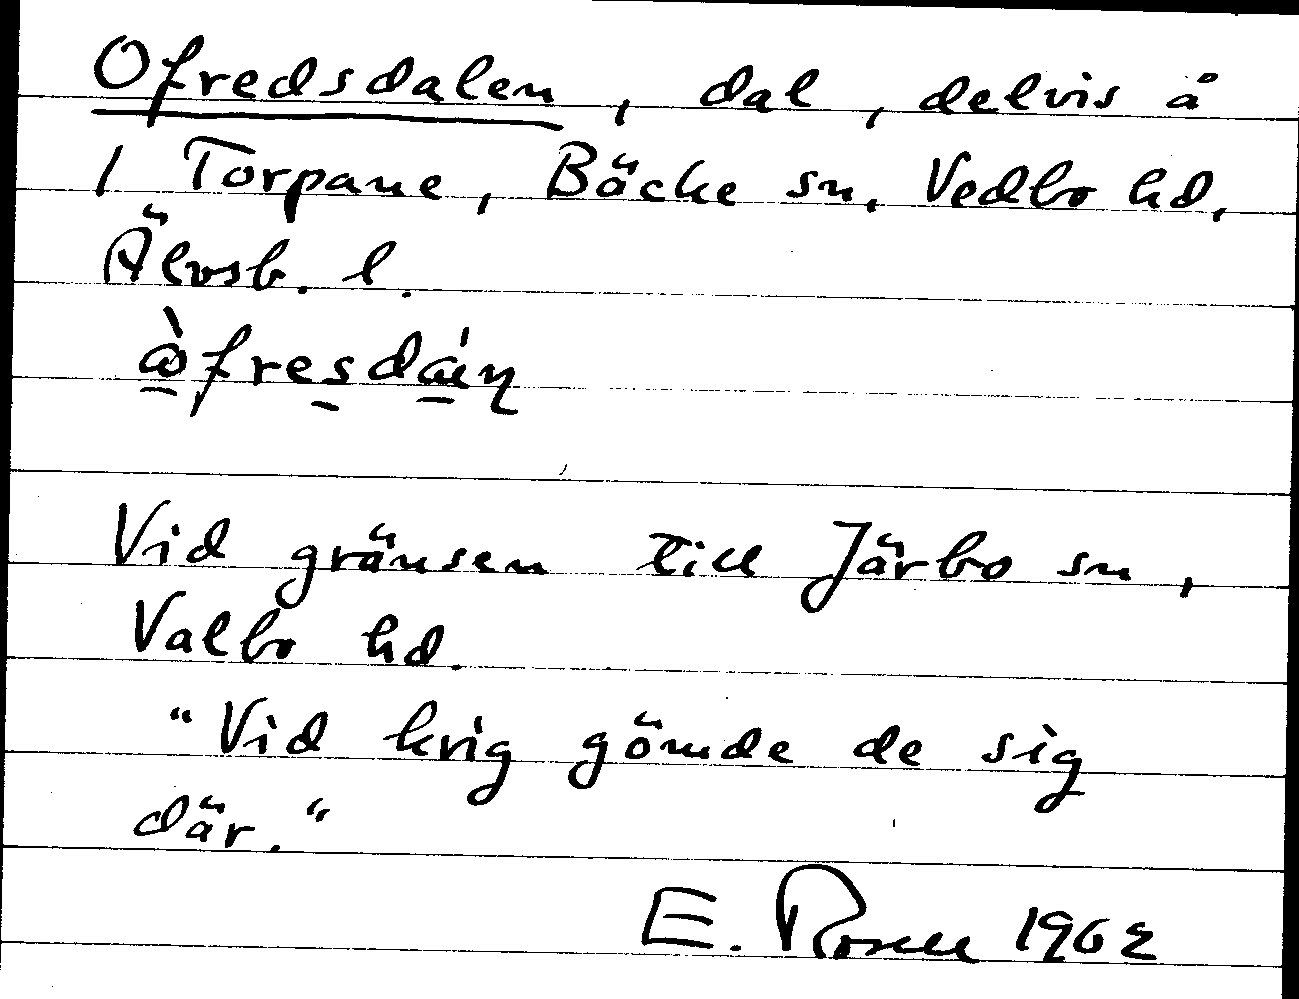 Ofredsdalen, dal, delvis å
1 Torpane, Bäcke sn, Vedbo hd,
Älvsb. l.
Vid gränsen till Järbo sn,
Valbo hd.
"Vid krig gömde de sig
där."
E. Rosell 1962